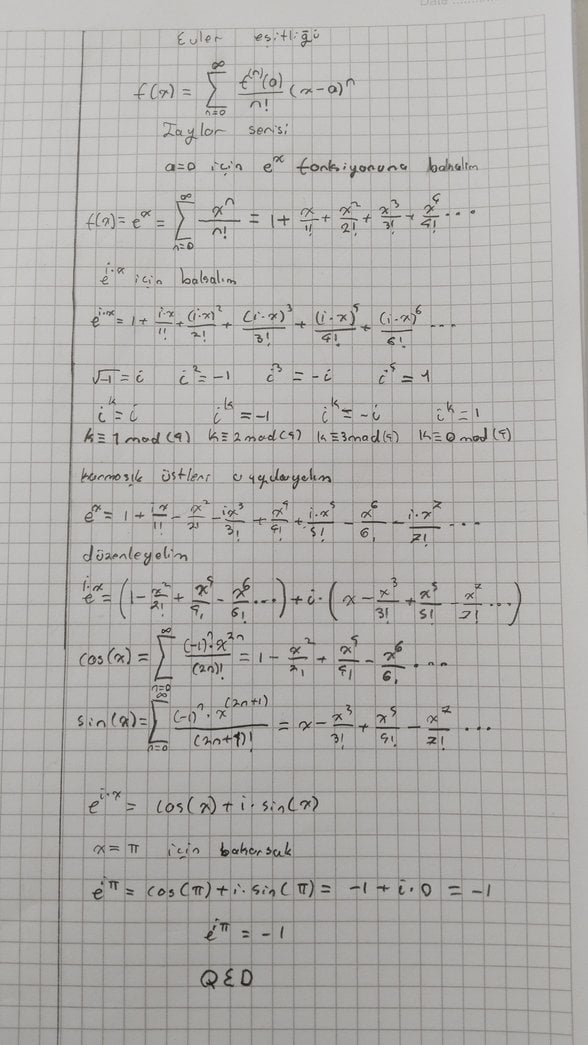 Euler eşitliği
f(x) = ∑_{n=0}^{∞} f^{(n)}(a)/n! (x-a)^n
Taylor serisi
a=0 için e^x fonksiyonuna bakalım
f(x) = e^x = ∑_{n=0}^{∞} x^n/n! = 1 + x/1! + x^2/2! + x^3/3! + x^4/4! ...
e^{i·x} için bakalım
e^{i·x} = 1 + i·x/1! + (i·x)^2/2! + (i·x)^3/3! + (i·x)^4/4! + (i·x)^6/6! ...
√-1 = i i^2 = -1 i^3 = -i i^4 = 1
i^k = i i^k = -1 i^k = -i i^k = 1
k≡1 mod(4) k≡2 mod(4) k≡3 mod(4) k≡0 mod(4)
karmaşık üstleri uygulayalım
e^{ix} = 1 + ix/1! - x^2/2! - ix^3/3! + x^4/4! + i·x^5/5! - x^6/6! - i·x^7/7! ...
düzenleyelim
e^{i·x} = (1 - x^2/2! + x^4/4! - x^6/6! ...) + i·(x - x^3/3! + x^5/5! - x^7/7! ...)
cos(x) = ∑_{n=0}^{∞} (-1)^n·x^{2n}/(2n)! = 1 - x^2/2! + x^4/4! - x^6/6! ...
sin(x) = ∑_{n=0}^{∞} (-1)^n·x^{(2n+1)}/(2n+1)! = x - x^3/3! + x^5/5! - x^7/7! ...
e^{i·x} = cos(x) + i·sin(x)
x = π için bakarsak
e^{iπ} = cos(π) + i·sin(π) = -1 + i·0 = -1
e^{iπ} = -1
QED